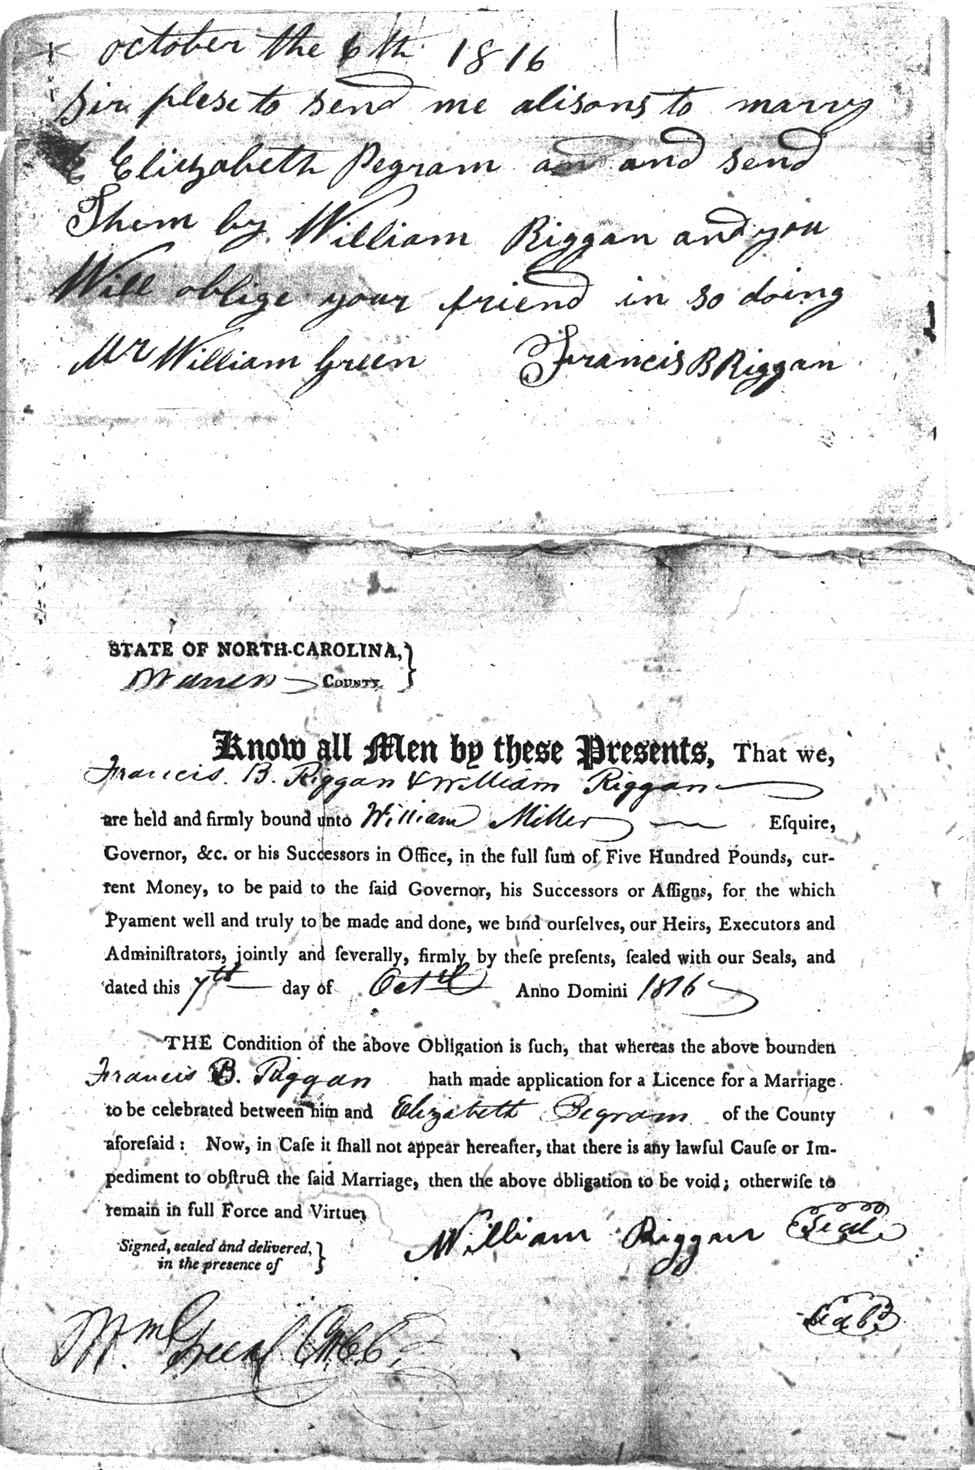 october the 6th 1816
Sir plese to send me alisons to marry
E Eliezabeth Pegram an and send
Them by William Riggan and you
Will oblige your friend in so doing
Mr William Green Francis B Riggan
STATE OF NORTH-CAROLINA, }
Warren County. }
Know all Men by these Presents, That we,
Francis. B. Riggan & William Riggan
are held and firmly bound unto William Miller Eſquire,
Governor, &c. or his Succeſſors in Office, in the full ſum of Five Hundred Pounds, cur-
rent Money, to be paid to the ſaid Governor, his Succeſſors or Aſſigns, for the which
Pyament well and truly to be made and done, we bind ourſelves, our Heirs, Executors and
Adminiſtrators, jointly and ſeverally, firmly by theſe preſents, ſealed with our Seals, and
dated this 7th day of Oct Anno Domini 1816
THE Condition of the above Obligation is ſuch, that whereas the above bounden
Francis B. Riggan hath made application for a Licence for a Marriage
to be celebrated between him and Elizabeth Pegram of the County
aforeſaid: Now, in Caſe it ſhall not appear hereafter, that there is any lawful Cauſe or Im-
pediment to obſtruct the ſaid Marriage, then the above obligation to be void; otherwiſe to
remain in full Force and Virtue,
Signed, sealed and delivered, }
in the presence of }
William Riggan Seal
Seal
Wm Green